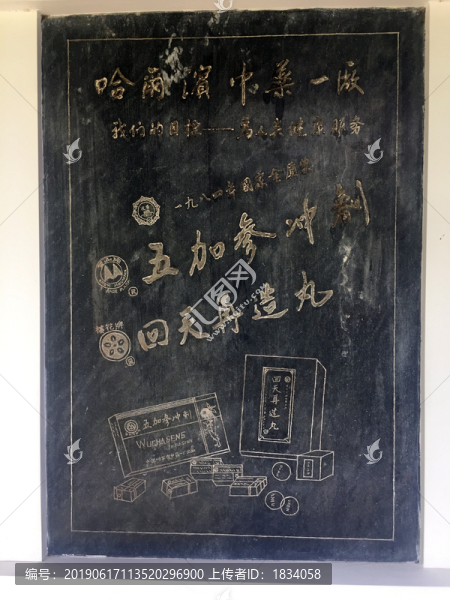 哈尔滨中药一厂
我们的目标——为人类健康服务
一九八四年国家金质奖
五加参冲剂
回天再造丸
五加参冲剂
WUCHASENG
回天再造丸
编号：20190617113520296900 上传者ID：1834058